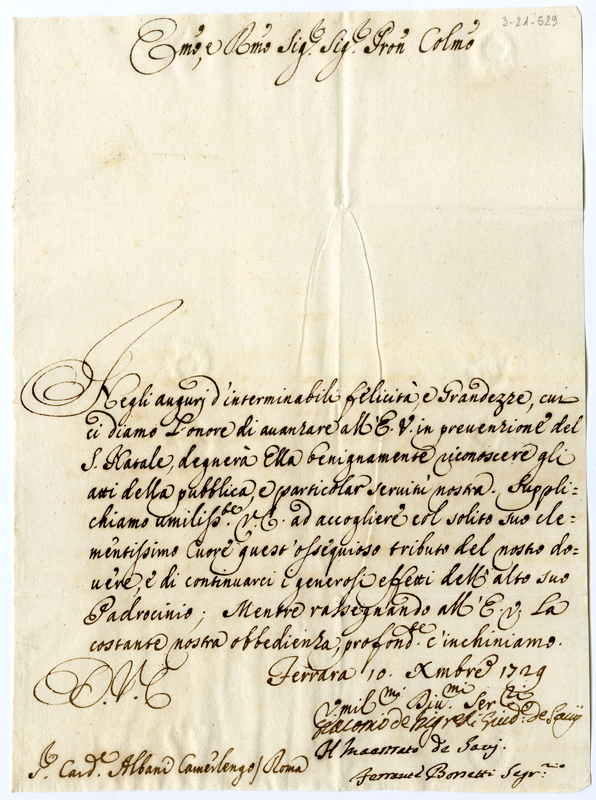 3-21-529
Emo, e Rmo Sig.r Sig.r Pron Colmo
Negli augurj d'interminabili felicità e Grandezze, cui
ci diamo l'onore di avanzare all'E.V. in prevenzione del
S. Natale, degnerà Ella benignamente riconoscere gli
atti della pubblica, e particolar servitù nostra. Suppli=
chiamo umiliss.te V.E. ad accogliere col solito suo cle=
mentissimo Cuore quest'ossequioso tributo del nostro do=
vere, e di continuarci i generosi effetti dell'alto suo
Padrocinio; Mentre rassegnando all'E.V. la
costante nostra obbedienza, profond.te c'inchiniamo.
D.V.E
Ferrara 10. Xmbre 1729
Umil.mi Div.mi Ser.ri
Giacomo de Giud.e de Savj
Il Maestrato de Savj.
S.r Card.e Albani Camerlengo / Roma
Ferrante Borsetti Segr.rio